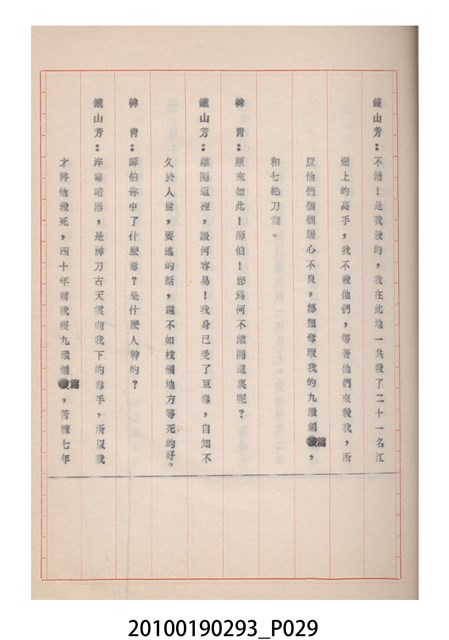 鐵山芳：不錯！是我殺的，我在此地一共殺了二十一名江
湖上的高手，我不殺他們，等著他們來殺我，所
以他們個個居心不良，都想奪取我的九環劍篇，
和七絶刀劍。
韓　青：原來如此！師伯！您為何不離開這裏呢？
鐵山芳：離開這裡，談何容易！我身已受了巨毒，自知不
久於人世，要逃的話，還不如找個地方等死的好。
韓　青：師伯你中了什麼毒？是什麼人幹的？
鐵山芳：淬毒暗器，是神刀古天虞向我下的毒手，所以我
才將他殺死，四十年前我獲九環劍篇，苦練七年
20100190293_P029